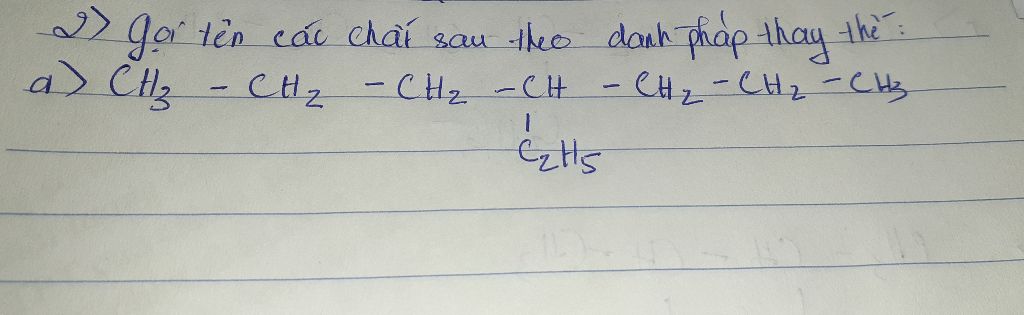 2> gọi tên các chất sau theo danh pháp thay thế:
a> CH₃ - CH₂ - CH₂ - CH - CH₂ - CH₂ - CH₃
|
C₂H₅